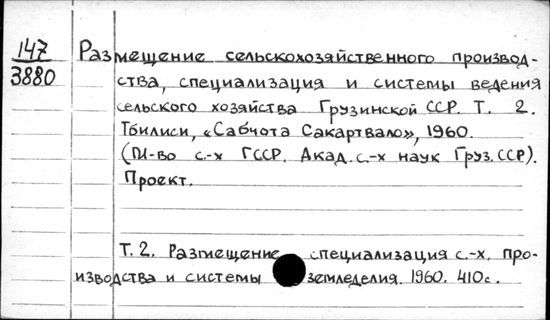 147
3880
Размещение сельскохозяйственного производ-
ства, специализация и системы ведения
сельского хозяйства Грузинской ССР. Т. 2.
Тбилиси, «Сабчота Сакартвало», 1960.
(М-во с.-х ГССР. Акад. с.-х наук Груз. ССР).
Проект.
Т. 2. Размещение специализация с.-х. про-
изводства и системы земледелия. 1960. 410с.